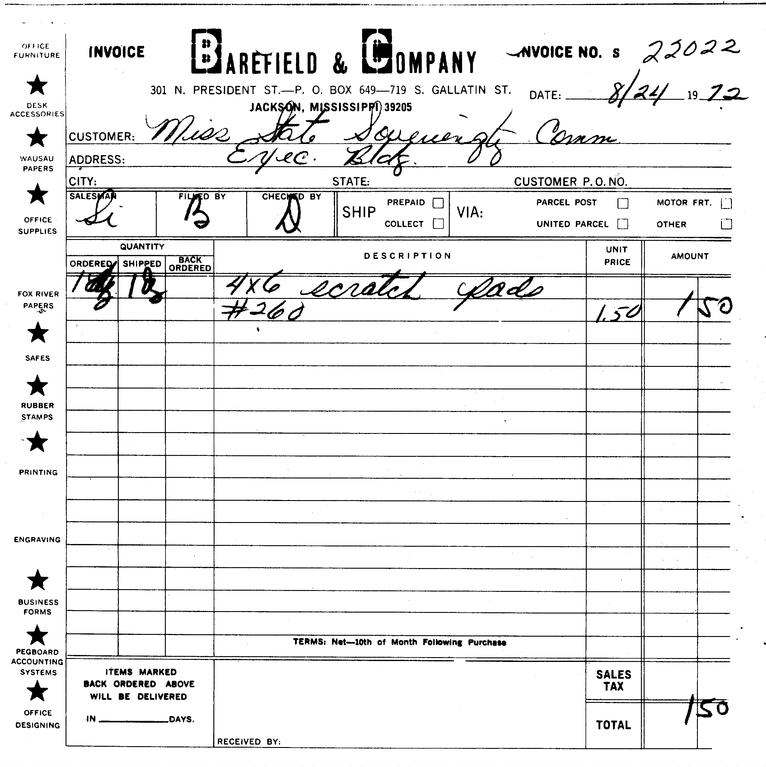 INVOICE
BAREFIELD & COMPANY
INVOICE NO. S 22022
301 N. PRESIDENT ST.—P. O. BOX 649—719 S. GALLATIN ST.
JACKSON, MISSISSIPPI 39205
DATE: 8/24 1972
CUSTOMER: Miss State Sovereignty Comm
ADDRESS: Exec. Bldg.
CITY: STATE: CUSTOMER P.O. NO.
SALESMAN Si FILLED BY B CHECKED BY D
SHIP PREPAID COLLECT VIA: PARCEL POST UNITED PARCEL MOTOR FRT. OTHER
QUANTITY DESCRIPTION UNIT PRICE AMOUNT
ORDERED SHIPPED BACK ORDERED
4x6 scratch pads
#260 1.50 1 50
TERMS: Net—10th of Month Following Purchase
ITEMS MARKED
BACK ORDERED ABOVE
WILL BE DELIVERED
IN DAYS.
RECEIVED BY:
SALES TAX
TOTAL 1 50
OFFICE FURNITURE
DESK ACCESSORIES
WAUSAU PAPERS
OFFICE SUPPLIES
FOX RIVER PAPERS
SAFES
RUBBER STAMPS
PRINTING
ENGRAVING
BUSINESS FORMS
PEGBOARD ACCOUNTING SYSTEMS
OFFICE DESIGNING